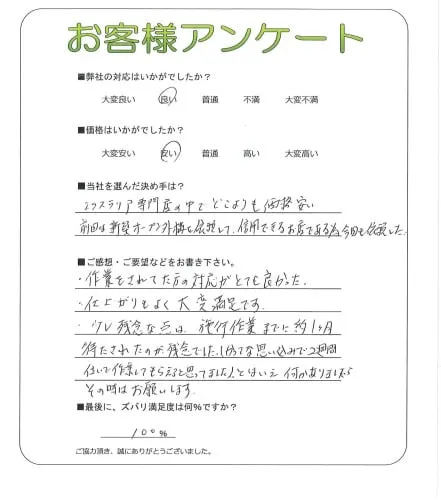 お客様アンケート
■弊社の対応はいかがでしたか?
大変良い 良い 普通 不満 大変不満
■価格はいかがでしたか?
大変安い 安い 普通 高い 大変高い
■当社を選んだ決め手は?
エクステリア専門店の中でどこよりも価格安い
前回は新築オープン外構を依頼して、信用できるお店である為今回も依頼した。
■ご感想・ご要望などをお書き下さい。
・作業をされてた方の対応がとても良かった。
・仕上がりもよく大変満足です。
・少し残念な点は、施行作業までに約1ヶ月
待たされたのが残念でした。な思い込みで2週間
位いで作業してもらえると思ってました とはいえ何かありましたら
その時はお願いします。
■最後に、ズバリ満足度は何%ですか?
100%
ご協力頂き、誠にありがとうございました。